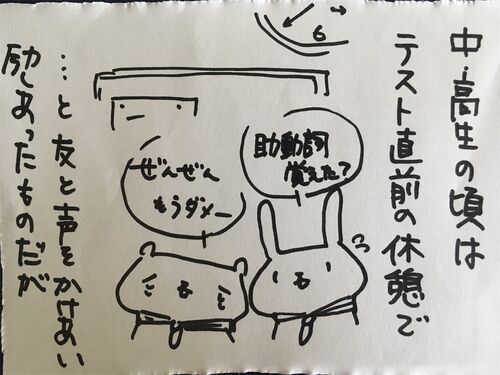 中・高生の頃は
テスト直前の休憩で
6
助動詞
覚えた？
ぜんぜん
もうダメー
…と友と声をかけあい
励しあったものだが